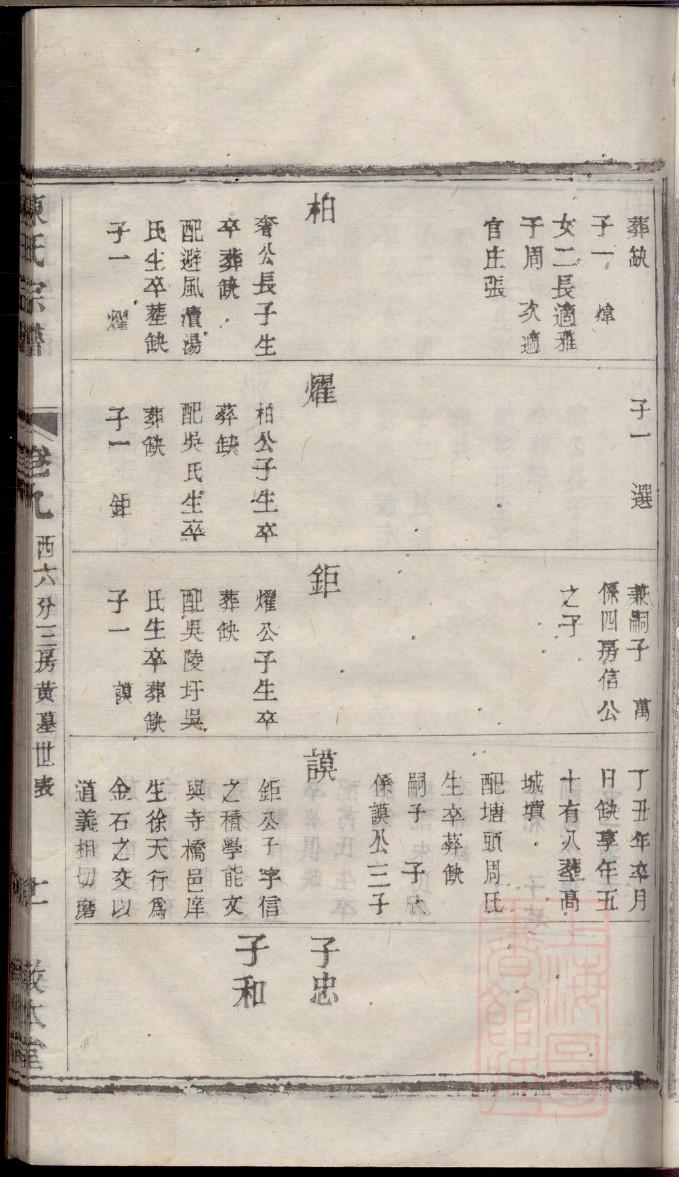 葬缺
子一 煒
女二長適雅
于周 次適
官庄張
柏
奢公長子生
卒葬缺
配避風瀆湯
氏生卒葬缺
子一 燿
子一 選
燿
柏公子生卒
葬缺
配吳氏生卒
葬缺
子一 鉅
兼嗣子 萬
係四房信公
之子
鉅
燿公子生卒
葬缺
配吳陵圩吳
氏生卒葬缺
子一 謨
丁丑年卒月
日缺享年五
十有八葬高
城墳
配塘頭周氏
生卒葬缺
嗣子 子
係謨公三子
謨
鉅公子字信
之積學能文
與寺橋邑庠
生徐天行爲
金石之交以
道義相切磨
子忠
子和
陳氏宗譜
卷九
西六分三房黃墓世表
敦本堂